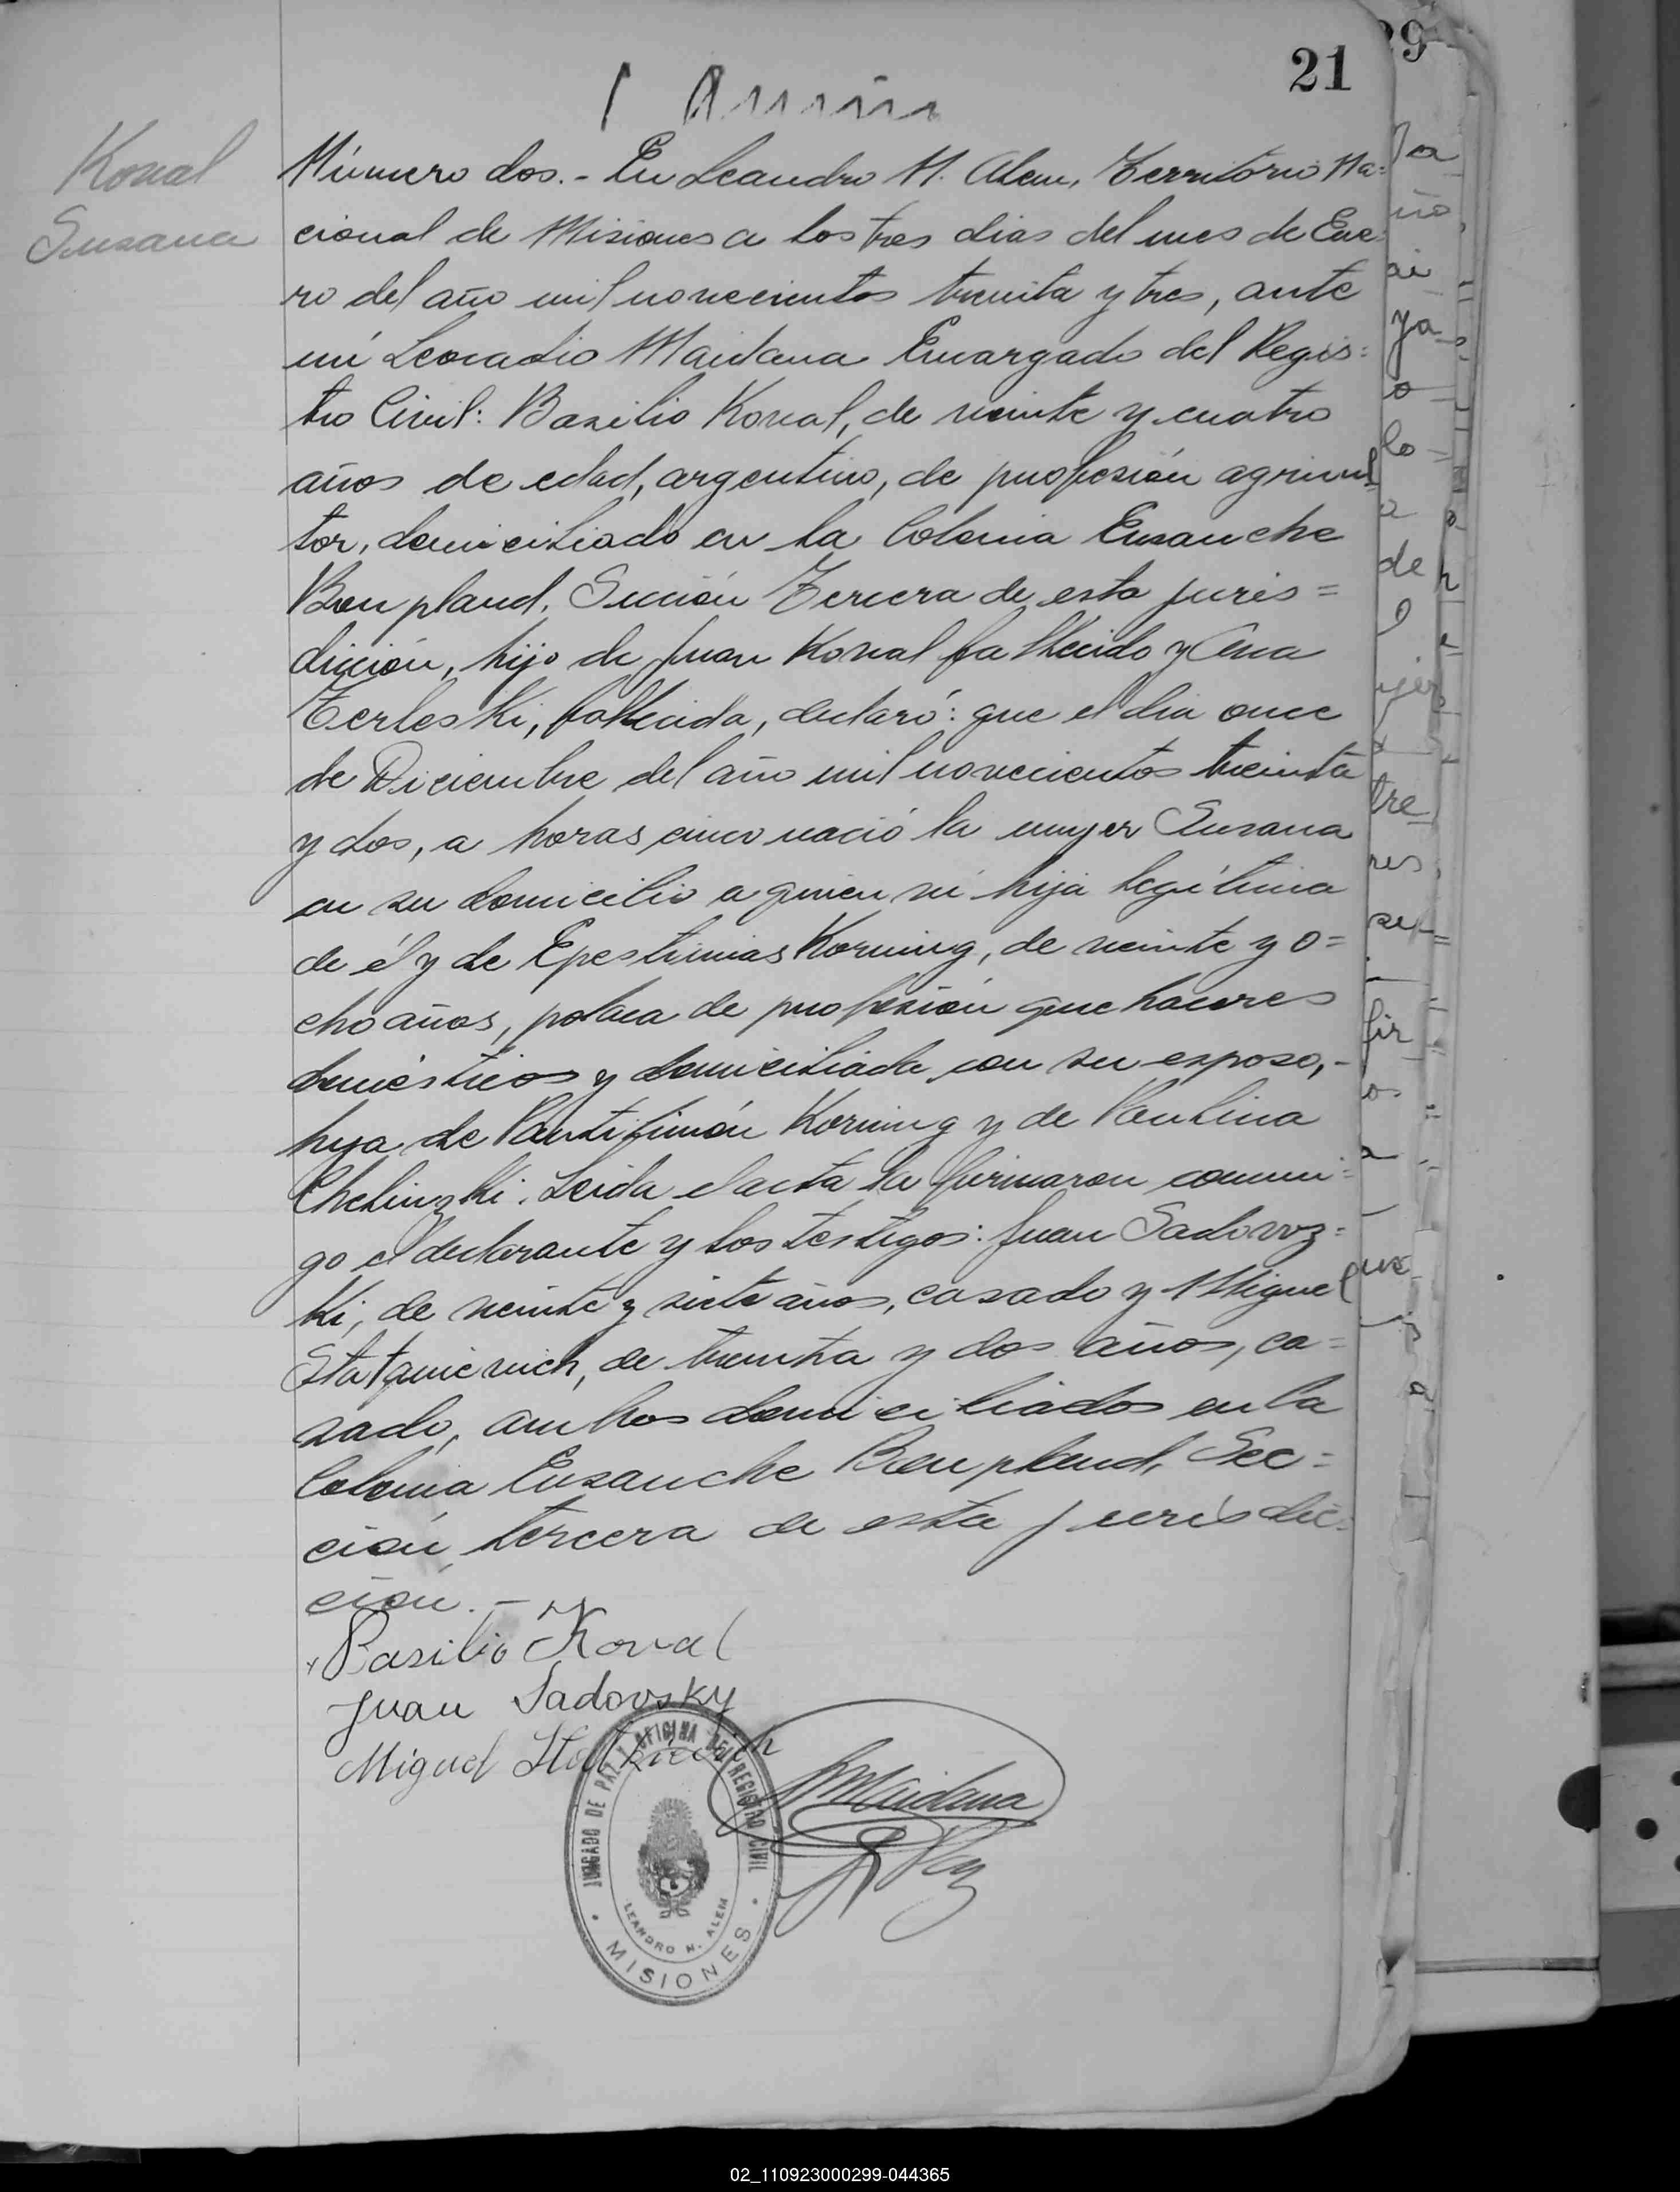 21
29
Koval
Susana
Número dos.- En Leandro N. Alem, Territorio Na=
cional de Misiones a los tres dias del mes de Ene=
ro del año mil novecientos treinta y tres, ante
mí Leocadio Maidana Encargado del Regis=
tro Civil: Basilio Koval, de veinte y cuatro
años de edad, argentino, de profesión agricul
tor, domiciliado en la Colonia Ensanche
Bonpland, Sección Tercera de esta juris=
dicción, hijo de Juan Koval fallecido y Ana
Terleski, fallecida, declaró: que el dia once
de Diciembre del año mil novecientos treinta
y dos, a horas cinco nació la mujer Susana
en su domicilio a quien ví hija legítima
de él y de Epestimias Korning, de veinte y o=
cho años, polaca de profesión quehaceres
domésticos y domiciliada con su esposo,-
hija de Pantifimón Korning y de Paulina
Chelinzki. Leida el acta la firmaron conmi=
go el declarante y los testigos: Juan Sadovoz=
ki, de veinte y siete años, casado y Miguel
de treinta y dos años, ca=
sado, ambos domiciliados en la
Colonia Ensanche Bonpland, Sec=
ción tercera de esta jurisdic=
ción.-
Basilio Koval
Juan Sadovsky
Miguel
Maidana
JUZGADO DE PAZ Y OFICINA DEL REGISTRO CIVIL
LEANDRO N. ALEM
MISIONES
02_110923000299-044365